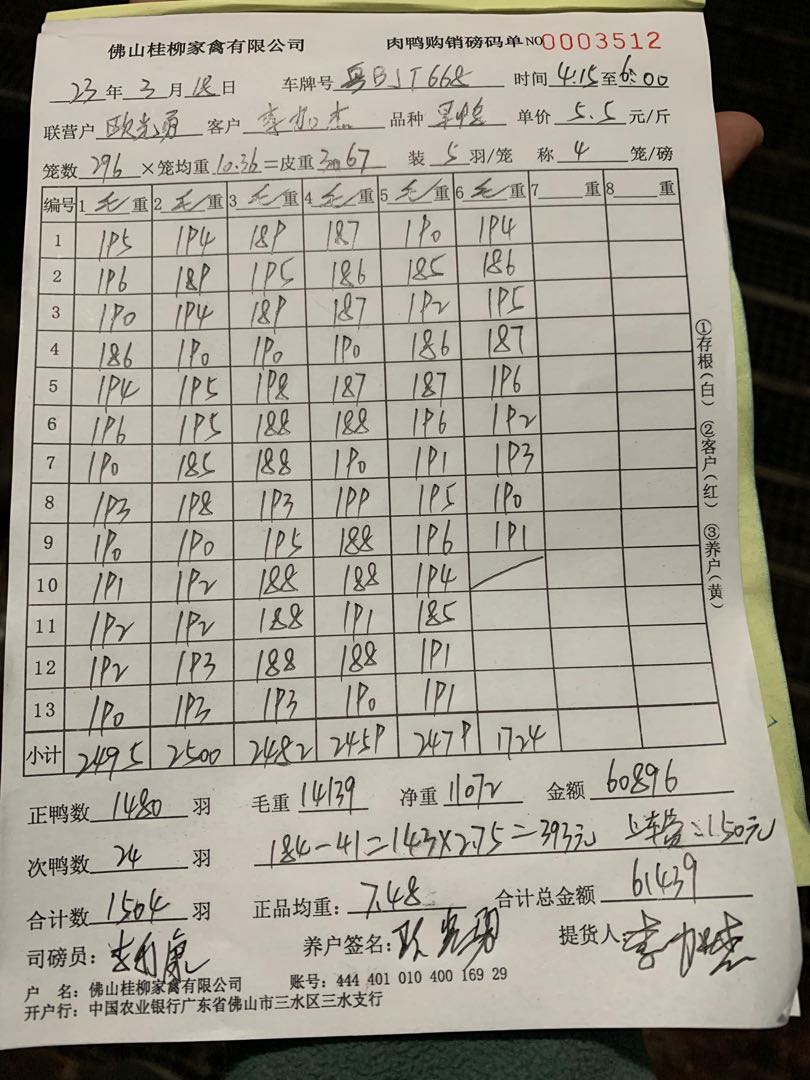 佛山桂柳家禽有限公司 肉鸭购销磅码单 NO 0003512
23 年 3 月 18 日 车牌号 粤BJT668 时间 4:15 至 6:00
联营户 欧光勇 客户 李加杰 品种 单价 5.5 元/斤
笼数 296 ×笼均重 10.36 =皮重 3067 装 5 羽/笼 称 4 笼/磅
编号 1 毛 重 2 毛 重 3 毛 重 4 毛 重 5 毛 重 6 毛 重 7 重 8 重
1 195 194 189 187 190 194
2 196 189 195 186 185 186
3 190 194 189 187 192 195
4 186 190 190 190 186 187
5 194 195 198 187 187 196
6 196 195 188 188 196 192
7 190 185 188 190 191 193
8 193 198 193 199 195 190
9 190 190 195 188 196 191
10 191 192 188 188 194
11 192 192 188 191 185
12 192 193 188 188 191
13 190 193 193 190 191
小计 2495 2500 2482 2459 2479 1724
正鸭数 1480 羽 毛重 14139 净重 11072 金额 60896
次鸭数 24 羽 184-41=143×2.75=393元 上车费:150元
合计数 1504 羽 正品均重: 7.48 合计总金额 61439
司磅员: 养户签名: 欧光勇 提货人: 李加杰
户 名: 佛山桂柳家禽有限公司 账号: 444 401 010 400 169 29
开户行: 中国农业银行广东省佛山市三水区三水支行
①存根(白) ②客户(红) ③养户(黄)